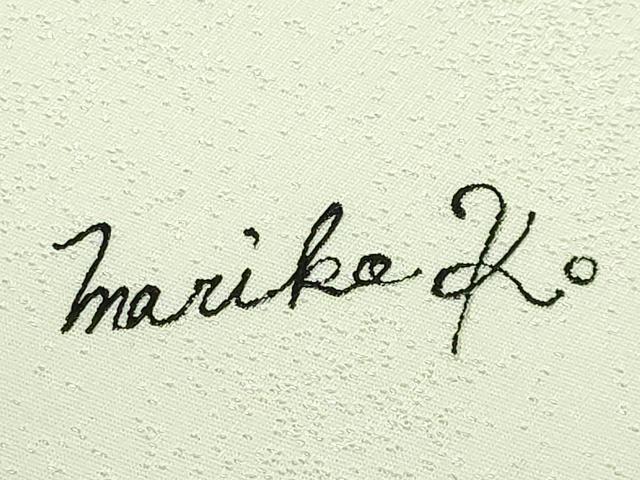 Mariko K.